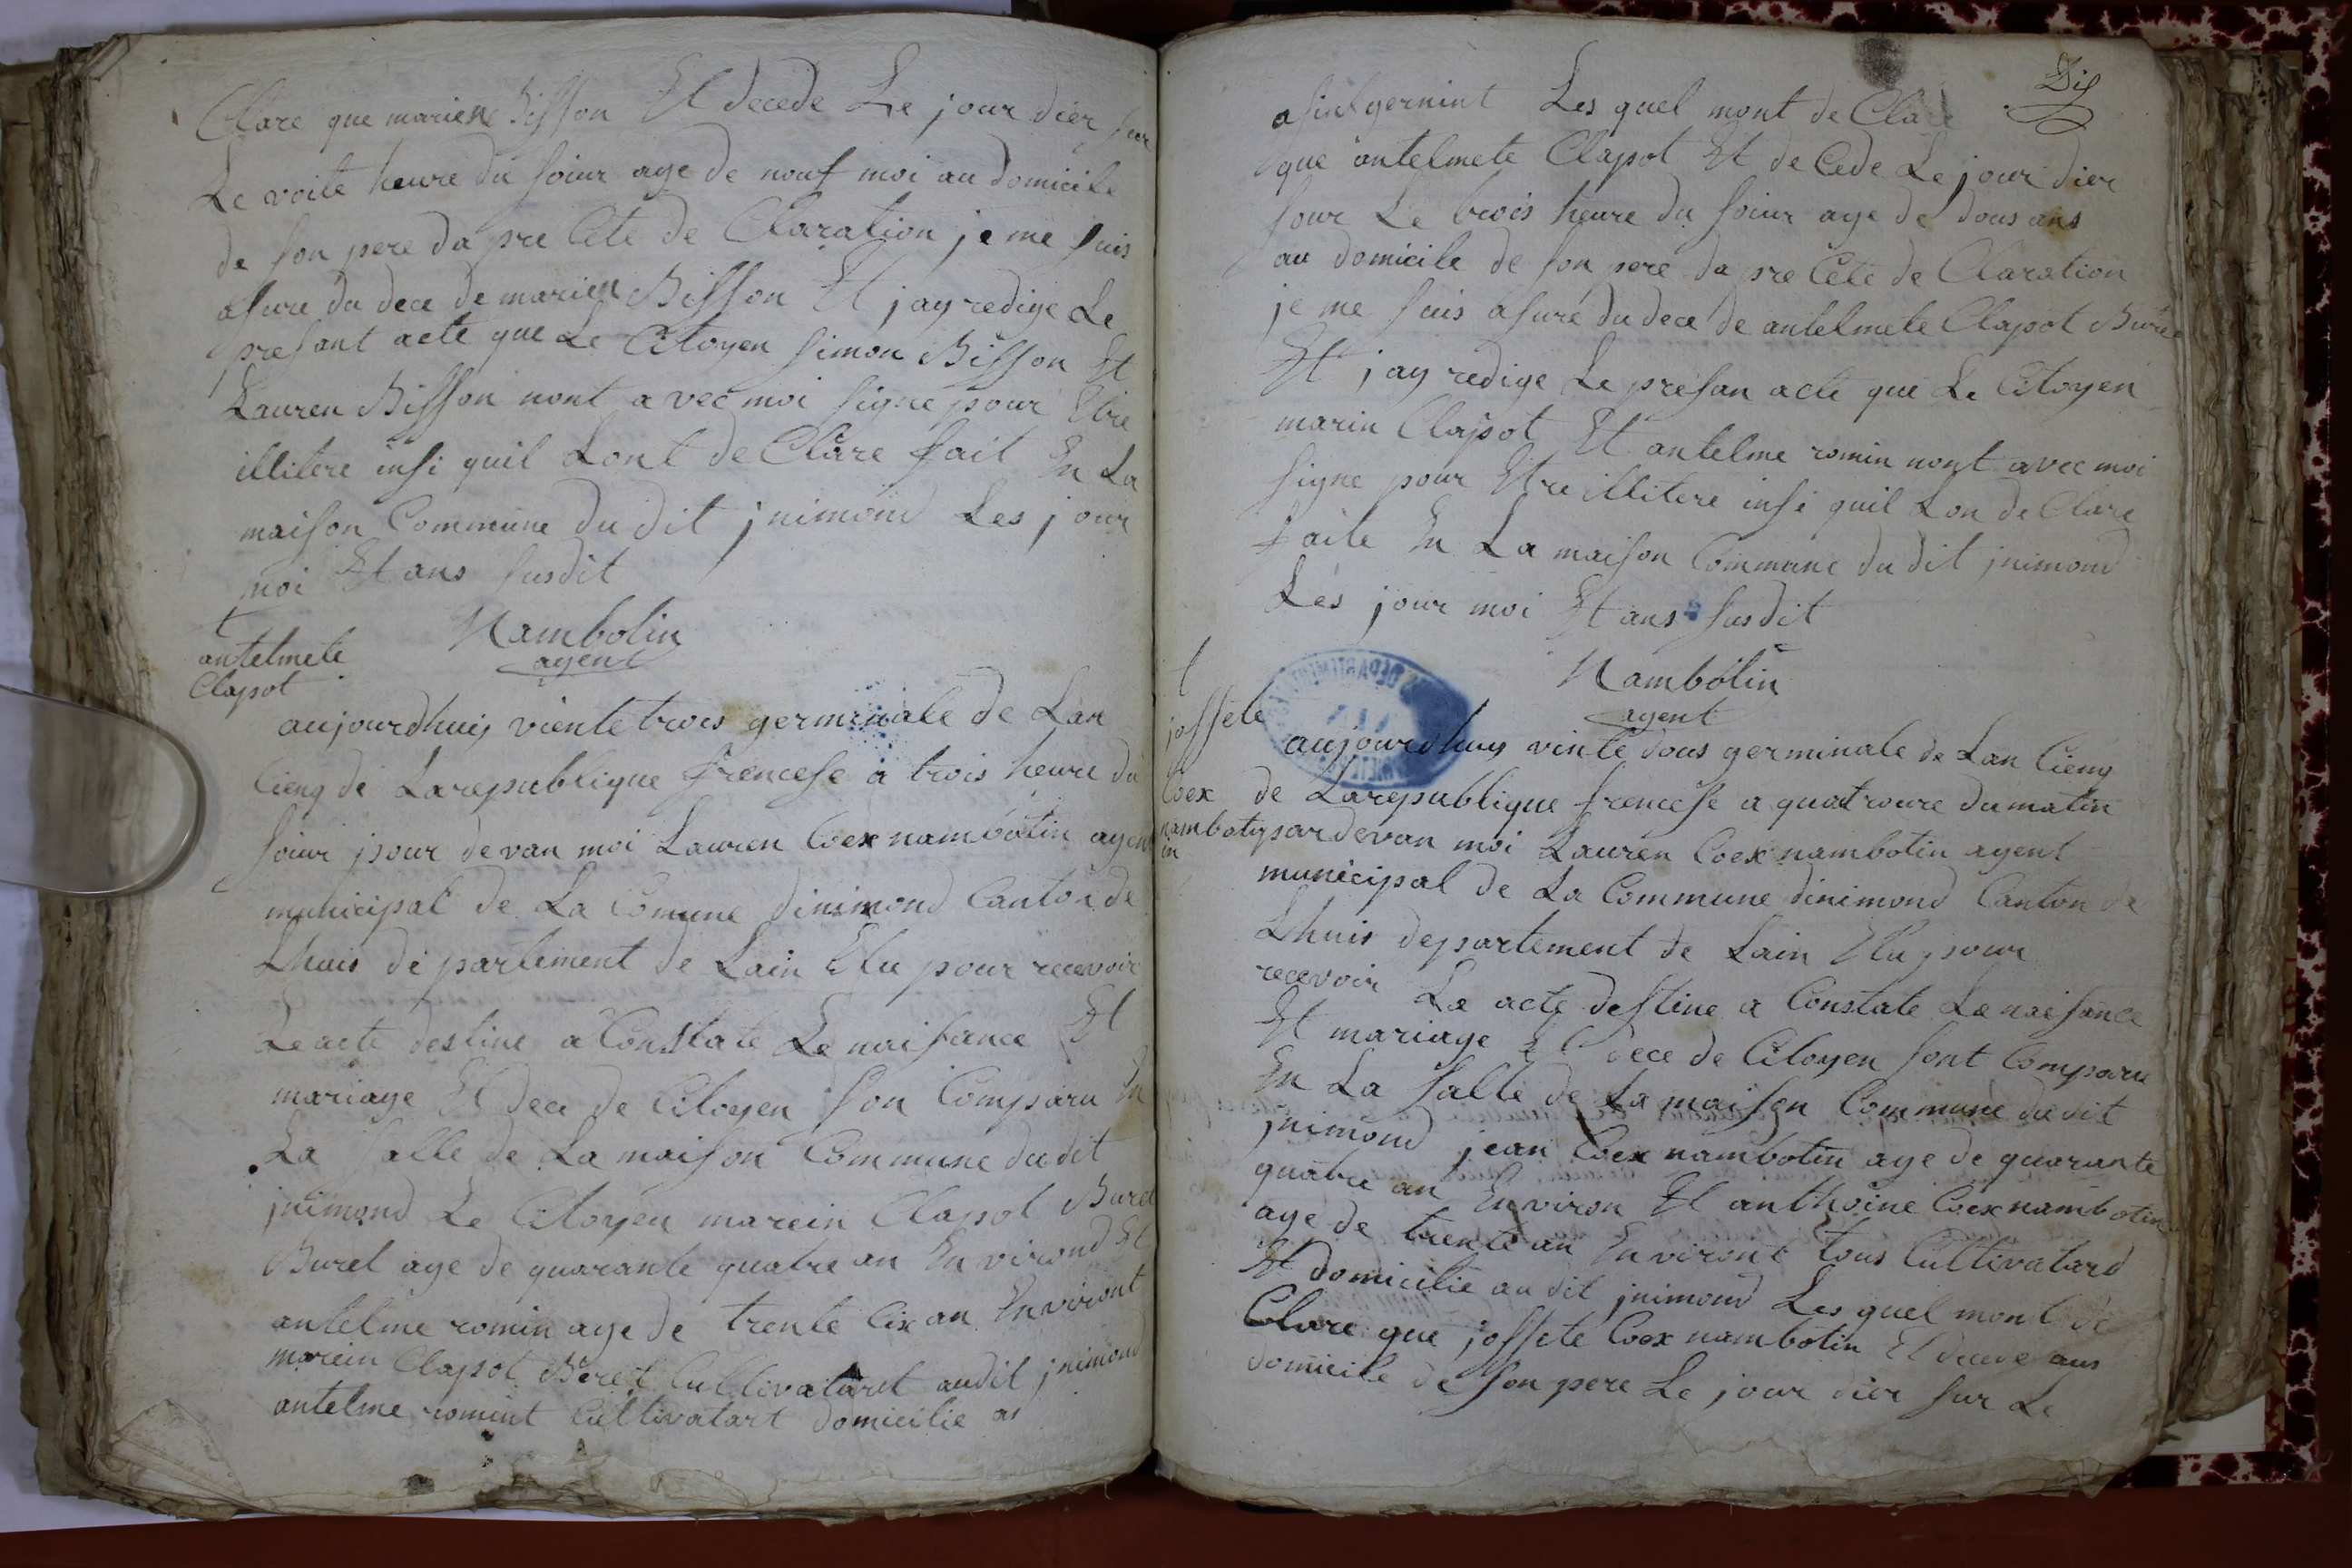 Clare que marien Bisson Et decede Le jour dier sur
Le voite heure du soiur age de nouf moi au domicile
de son pere da pre Cete de Claration je me suis
asure du dece de marien Bisson Et jay redige Le
presant acte que Le Citoyen simon Bisson Et
Lauren Bisson nont avec moi signe pour Etre
illitere insi quil Lont de Clare fait En La
maison Commune du dit jnimond Les jour
moi Et ans susdit
Nambotin
agent
antelmete
Clapot
aujourdhuy viente trois germinale de Lan
Cienq de Larepublique francese a trois heure du
soiur pour devan moi Lauren Coex nambotin agent
municipal de La Comune dinimond Canton de
Lhuis de partement de Lain Elu pour recevoir
Le acte destine a Constate Le naisance Et
mariage Et dece de Citoyen son Comparu En
La salle de La maison Commune du dit
jnimond Le Citoyen marein Clapot Buret
Buret age de quarante quatre an En virond Et
antelme romin age de trente Cix an Environt
marein Clapot Buret Cultivaturet au dit jnimond
antelme romint Cultivatart domicilie a
Dis
asiulgernint Les quel mont de Clare
que antelmete Clapot Et de Cede Le jour dier
sour Le trois heure du soiur age de dous ans
au domicile de son pere da pre Cete de Claration
je me suis asure du dece de antelmete Clapot Buret
Et jay redige Le presan acte que Le Citoyen
marin Clapot Et antelme romin nont avec moi
signe pour Etre illitere insi quil Lon de Clare
faite En La maison Commune du dit jnimond
Les jour moi Et ans susdit
Nambotin
agent
jossete
Coex
nambot
in
aujourdhuy vinte dous germinale de Lan Cienq
de Larepublique francese a quatroure du matin
par devan moi Lauren Coex nambotin agent
municipal de La Commune dinimond Canton de
Lhuis departement de Lain Elu pour
recevoir Le acte destine a Constate Le naisance
Et mariage Et dece de Citoyen sont Comparu
En La salle de La maison Commune du dit
jnimond jean Coex nambotin age de quarante
quatre an Environ Et anthoine Coex nambotin
age de trente an Environt tous Cultivatard
Et domicilie au dit jnimond Les quel mont de
Clare que jossete Coex nambotin Et decede aus
domicile de son pere Le jour dier sur Le